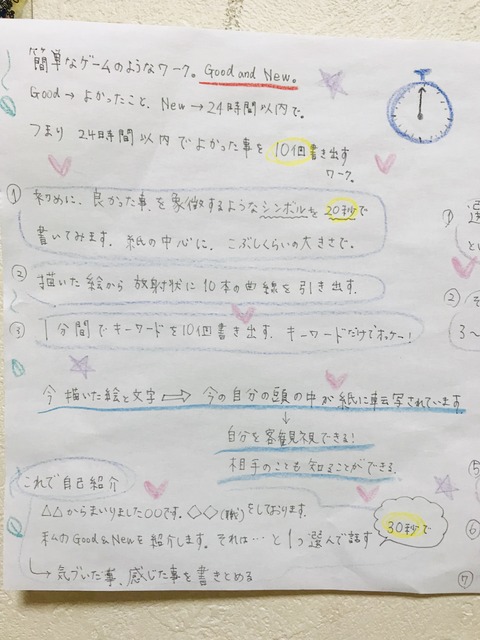 簡単なゲームのようなワーク。Good and New。
Good→よかったこと、New→24時間以内で。
つまり 24時間以内でよかった事を10個書き出す
ワーク。
① 初めに、良かった事を象徴するようなシンボルを20秒で
書いてみます。紙の中心に、こぶしくらいの大きさで。
② 描いた絵から 放射状に10本の曲線を引き出す。
③ 1分間でキーワードを10個書き出す。キーワードだけでオッケー!
今 描いた絵と文字 ⇒ 今の自分の頭の中が紙に転写されています
↓
自分を客観視できる!
相手のことも知ることができる。
これで自己紹介
△△からまいりました○○です。◇◇(職)をしております。
私のGood&Newを紹介します。それは…と1つ選んで話す
30秒で
↳ 気づいた事、感じた事を書きとめる
①
②
3~
⑤
⑥
⑦